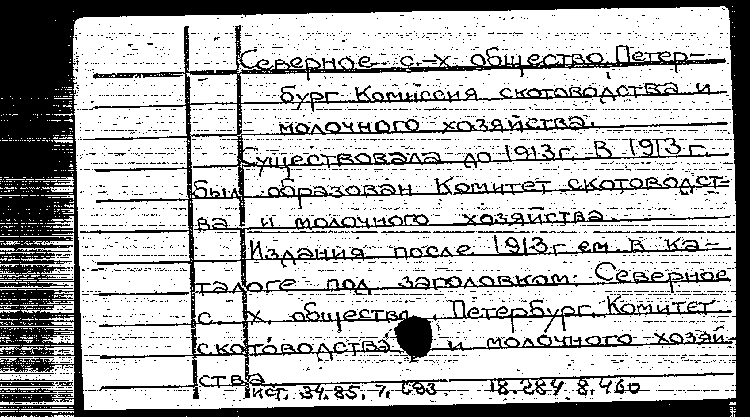 Северное с.-х. общество, Петер-
бург. Комиссия скотоводства и
молочного хозяйства.
Существовала до 1913 г. В 1913 г.
был образован Комитет скотоводст-
ва и молочного хозяйства.
Издания после 1913 г см. в ка-
талоге под заголовком: Северное
с. х. общество, Петербург. Комитет
скотоводства и молочного хозяй-
ства
ист. 34.85.7, 18.284 8.460